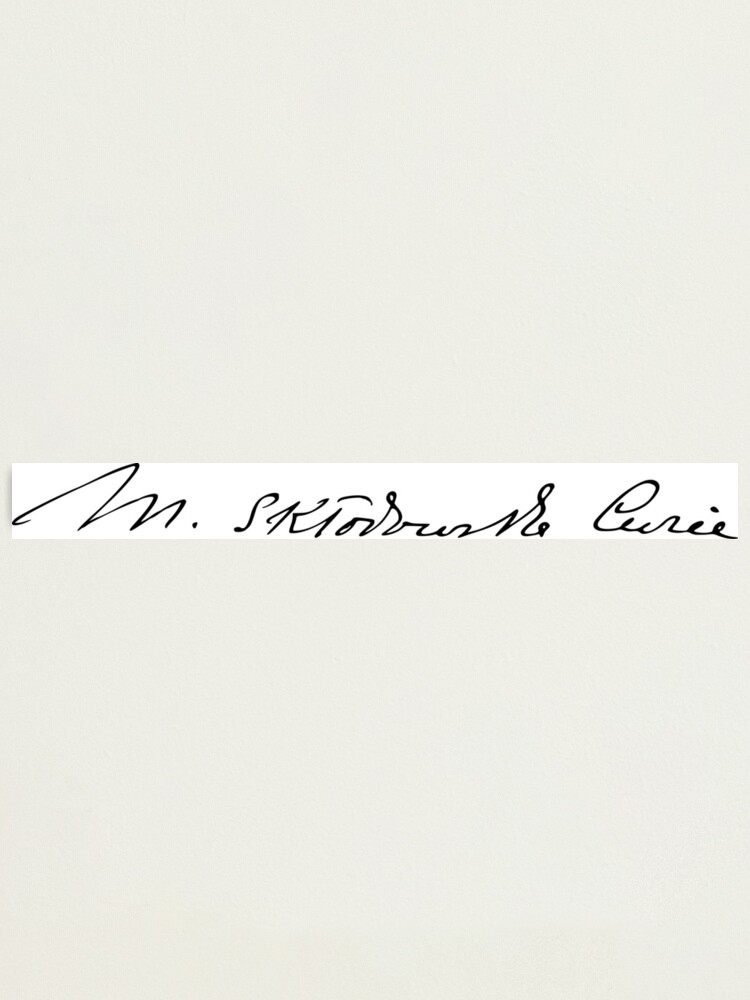 M. Skłodowska Curie